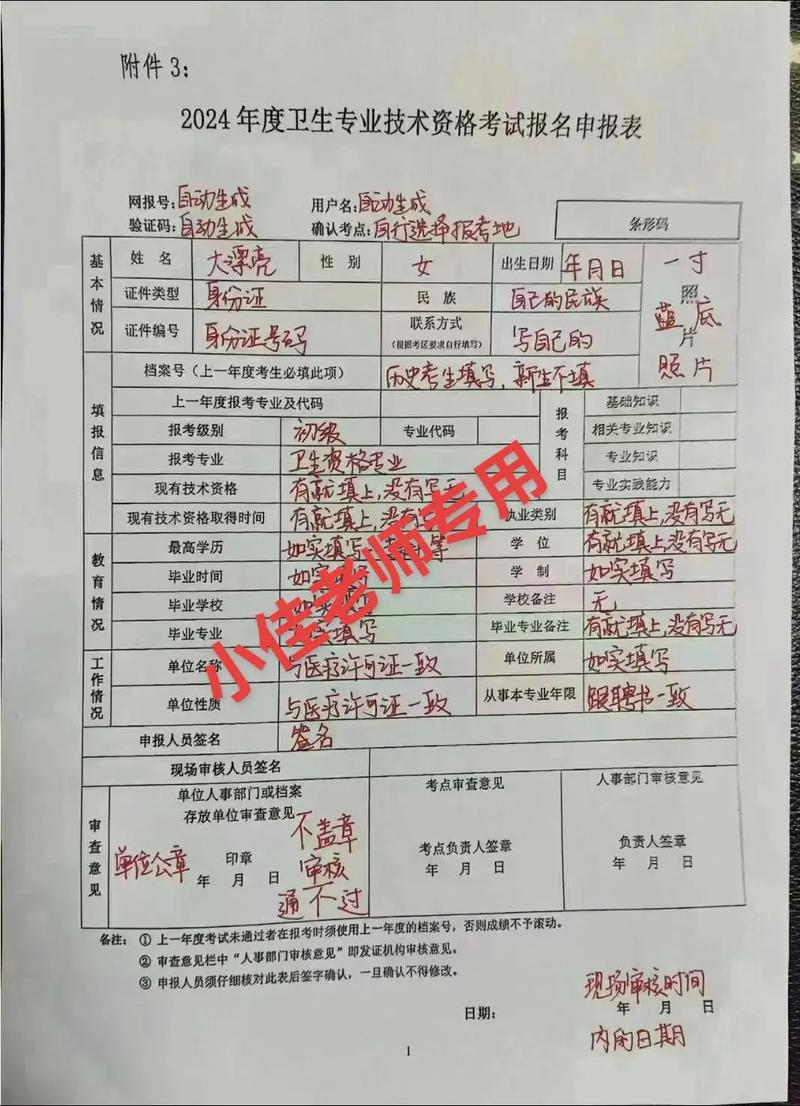 附件 3：
2024 年度卫生专业技术资格考试报名申报表
网报号：自动生成 用户名：自动生成
验证码：自动生成 确认考点：自行选择报考地 条形码
基本情况
姓 名 大漂亮 性 别 女 出生日期 年月日 一寸
证件类型 身份证 民 族 自己的民族 照 蓝底
证件编号 身份证号码 联系方式 写自己的 片
（根据考区要求自行填写） 照片
填报信息
档案号（上一年度考生必填此项） 历史考生填写，新生不填
上一年度报考专业及代码 报考科目 基础知识
报考级别 初级 专业代码 相关专业知识
报考专业 卫生资格专业 专业知识
现有技术资格 有就填上，没有写无 专业实践能力
现有技术资格取得时间 有就填上，没有 执业类别 有就填上，没有写无
教育情况
最高学历 如实填写 等 学 位 有就填上，没有写无
毕业时间 如实填写 学 制 如实填写
毕业学校 如实 学校备注 无
毕业专业 填写 毕业专业备注 有就填上，没有写无
工作情况
单位名称 与医疗许可证一致 单位所属 如实填写
单位性质 与医疗许可证一致 从事本专业年限 跟聘书一致
申报人员签名 签名
现场审核人员签名
审查意见
单位人事部门或档案 考点审查意见 人事部门审核意见
存放单位审查意见 不盖章
单位公章 印章 审核 考点负责人签章 负责人签章
年 月 日 通不过 年 月 日 年 月 日
备注： ① 上一年度考试未通过者在报考时须使用上一年度的档案号，否则成绩不予滚动。
② 审查意见栏中“人事部门审核意见”即发证机构审核意见。
③ 申报人员须仔细核对此表后签字确认，一旦确认不得修改。
现场审核时间
日期： 年 月 日
内的日期
1
小佳老师专用